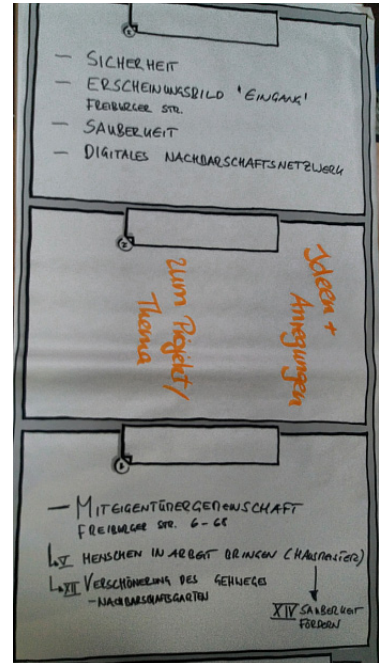 — SICHERHEIT
— ERSCHEINUNGSBILD 'EINGANG'
FREIBURGER STR.
— SAUBERHEIT
— DIGITALES NACHBARSCHAFTSNETZWERK
2
Ideen +
Anregungen
zum Projekt/
Thema
— MITEIGENTÜMERGEMEINSCHAFT
FREIBURGER STR. 6-68
↳ V HENSCHEN IN ARBEIT BRINGEN (HAUSMEISTER)
↳ XII VERSCHÖNERUNG DES GEHWEGES
– NACHBARSCHAFTSGARTEN
XIV SAUBERKEIT
FÖRDERN